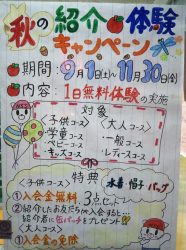 秋の紹介・体験
キャンペーン
期間：9/1(土)～11/30(金)
内容：1日無料体験の実施
対象
＜子供コース＞ ＜大人コース＞
・学童コース ・一般コース
・ベビーコース ・レディースコース
・キッズコース
特典
＜子供コース＞ 水着 帽子 バッグ
①入会金無料 3点セット
②紹介したお友だちが入会すると
紹介者に缶バッチをプレゼント!!
＜大人コース＞
①入会金の免除